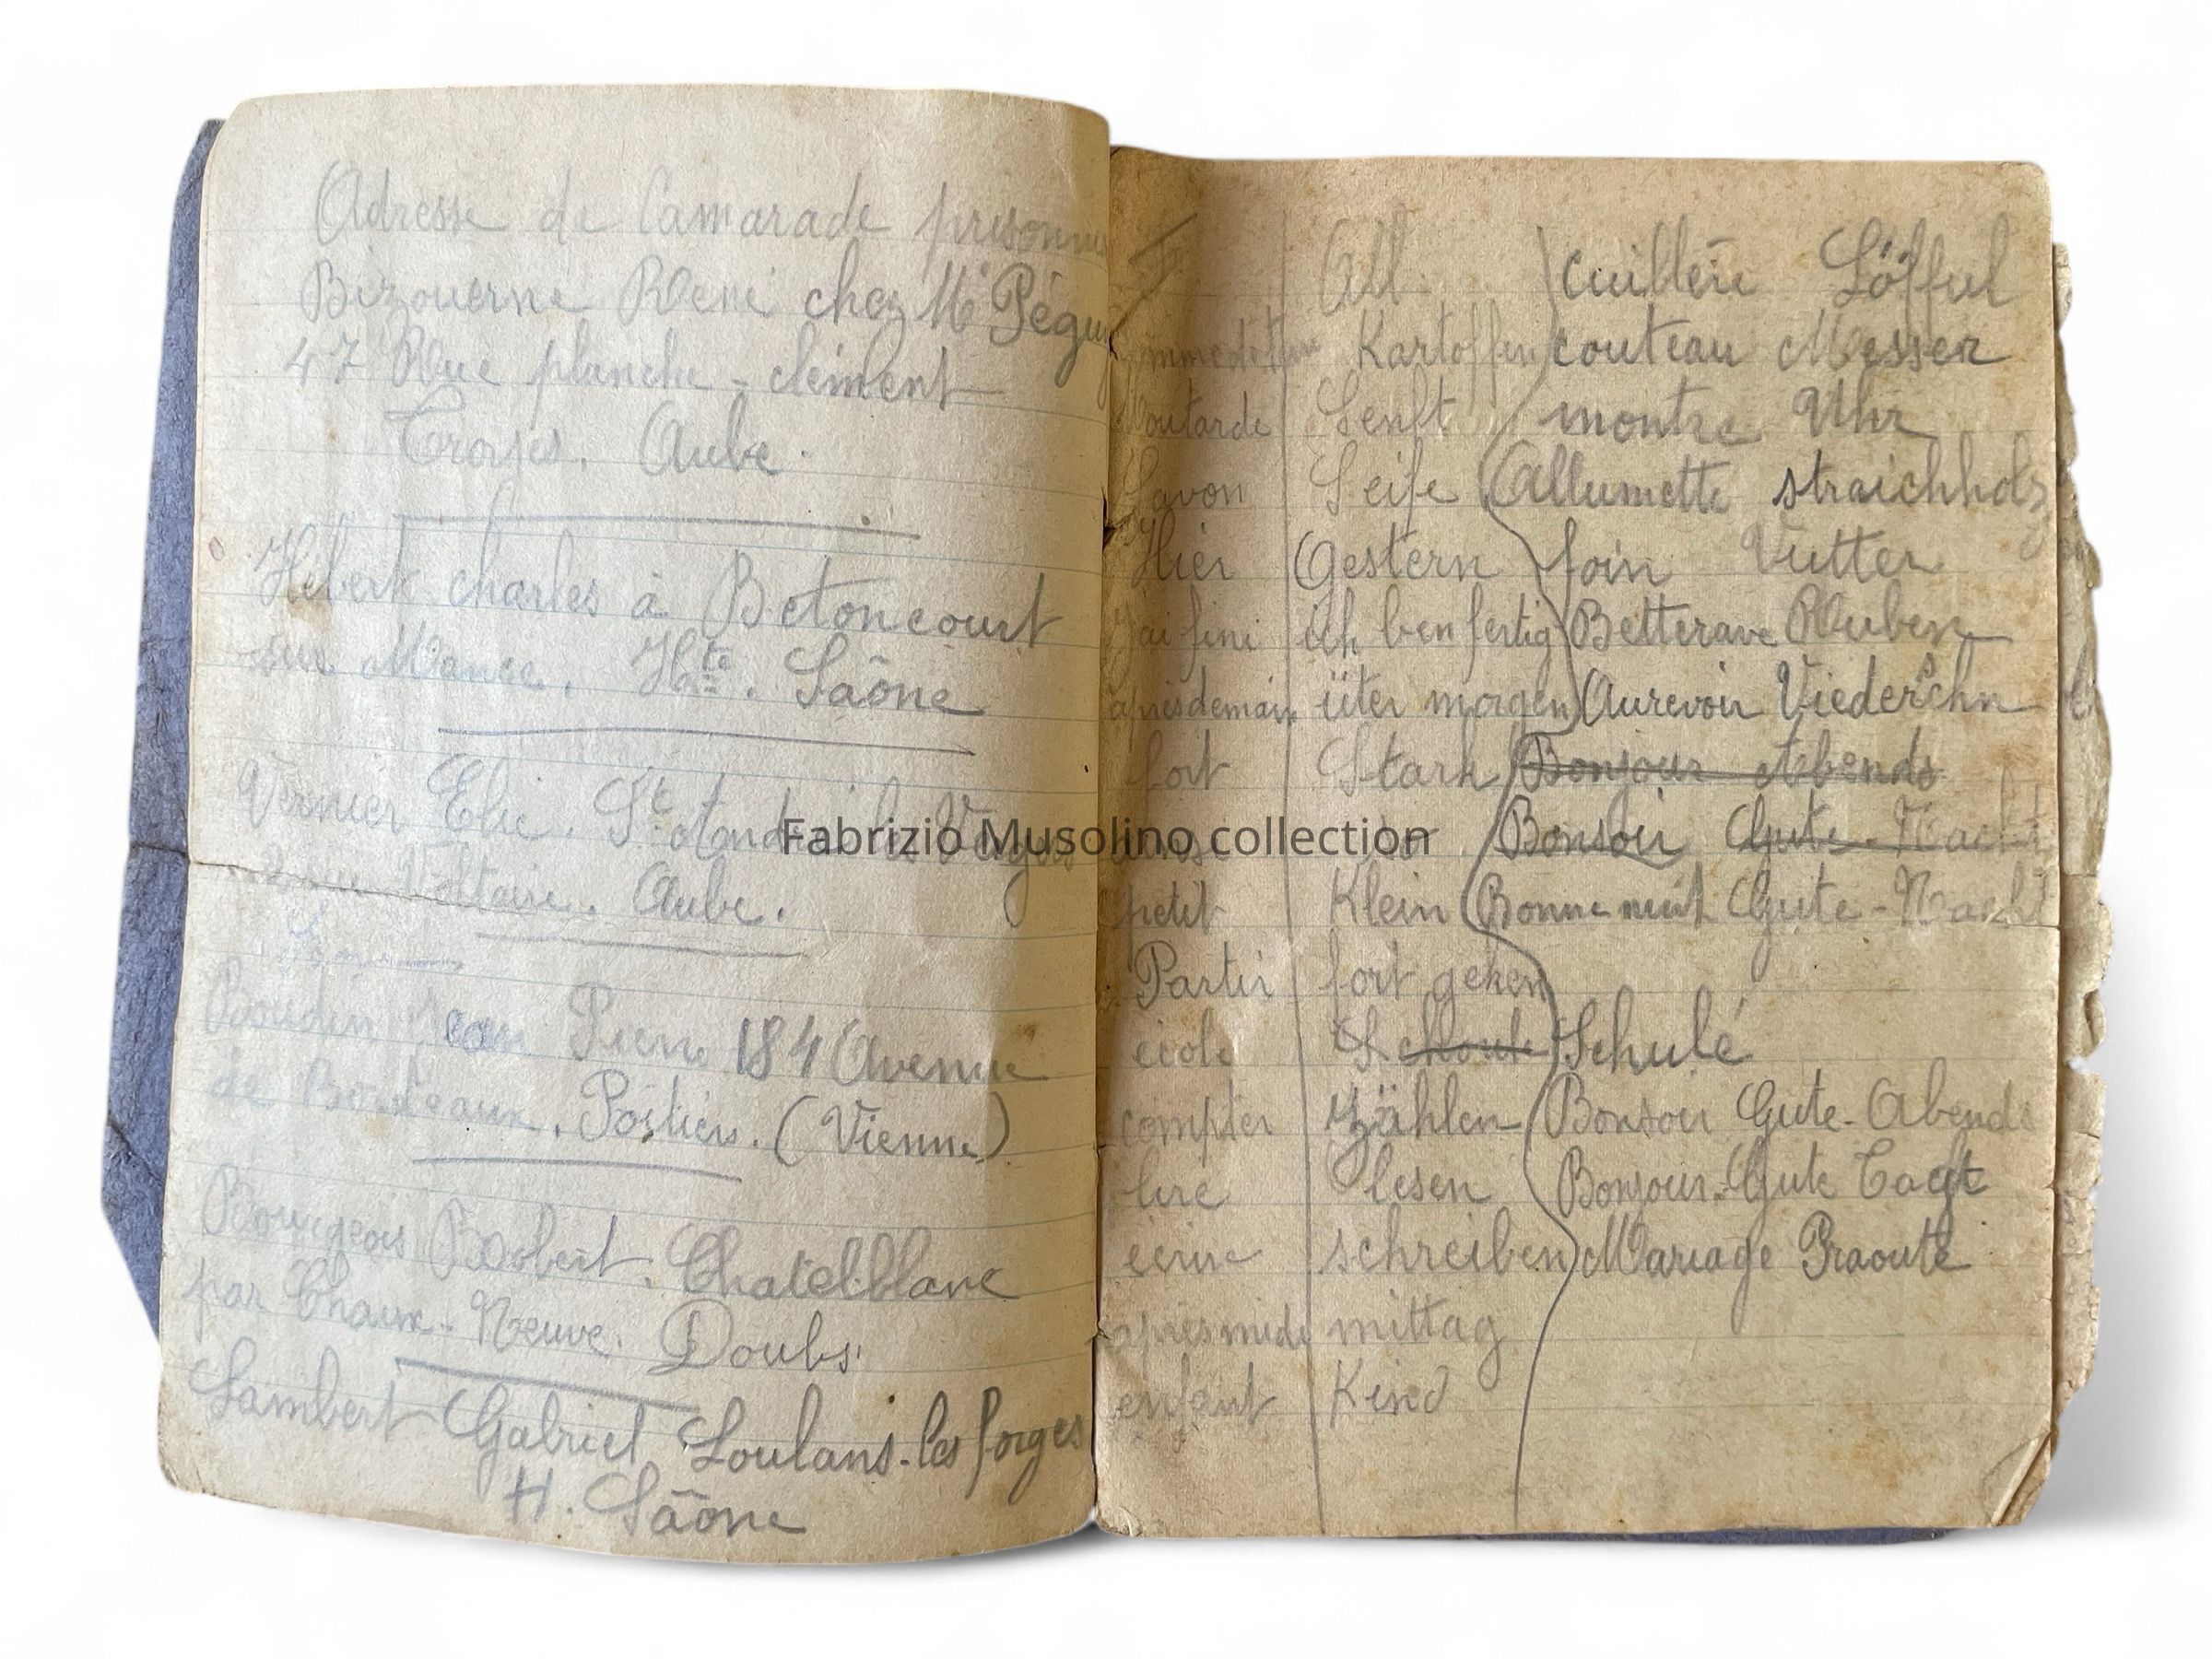 Adresse de Camarade prisonn
Bizouerne René chez Mr Pégu
47 Rue planche - clément
Troyes. Aube.
Hébert charles à Betoncourt
sur Mance. Hte. Saône
Vernier Elie. St. André les Verges
2 rue Voltaire. Aube.
Boudin Jean Pierre 184 Avenue
de Bordeaux. Poitiers. (Vienne)
Bourgeois Robert. Chatelblanc
par Chaux-Neuve. Doubs
Lambert Gabriel Loulans-les forges
H. Saône
F. All cuillère Löfful
pomme de terre Kartoffen couteau Messer
Moutarde Senft montre Uhr
Savon Seife Allumette straichholz
Hier Gestern foin Vutter
J'ai fini ich ben fertig Betterave Ruben
après demain üter morgen Aurevoir Viederschn
fort Stark Bonjour Abends
so Bonsoir Gute-Nacht
petit Klein Bonne nuit Gute-Nacht
Partir fort gehen
école Schoule Schulé
compter zählen Bonsoir Gute-Abends
lire lesen Bonjour. Gute Tagt
écrire schreiben Mariage Praoute
après midi mittag
enfant Kind
Fabrizio Musolino collection